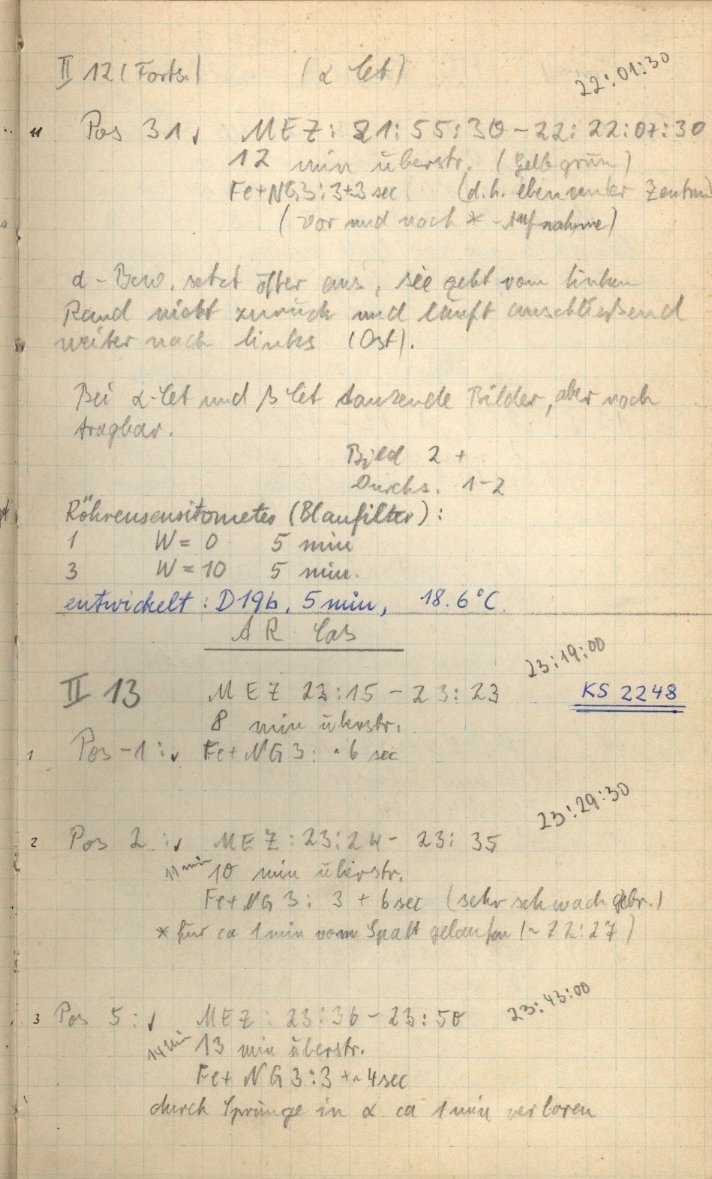 II 12 (Forts.) (α Cet) 22:01:30
11 Pos 31 ✓ MEZ: 21:55:30 - 22:22:07:30
12 min überstr. (Gelbgrün)
Fe+NG3: 3+3 sec (d.h. eben unter Zentrum
(vor und nach * -Aufnahme)
α-Bew. setzt öfter aus, sie geht vom linken
Rand nicht zurück und läuft anschließend
weiter nach links (Ost).
Bei α-Cet und β Cet tanzende Bilder, aber noch
tragbar.
Bild 2 +
Durchs. 1-2
Röhrensensitometer (Blaufilter):
1 W = 0 5 min
3 W = 10 5 min.
entwickelt: D19b, 5 min, 18.6°C
AR Cas
23:19:00
II 13 MEZ 23:15 - 23:23 KS 2248
8 min überstr.
1 Pos -1: ✓ Fe+NG3: ~6 sec
23:29:30
2 Pos 2 : ✓ MEZ: 23:24 - 23:35
11 min 10 min überstr.
Fe+NG3: 3 + 6 sec (sehr schwach gebr.)
* für ca 1 min vom Spalt gelaufen (~ 22:27)
23:43:00
3 Pos 5: ✓ MEZ: 23:36 - 23:50
14 min 13 min überstr.
Fe+ NG3: 3 + ~4 sec
durch Sprünge in α ca 1 min verloren